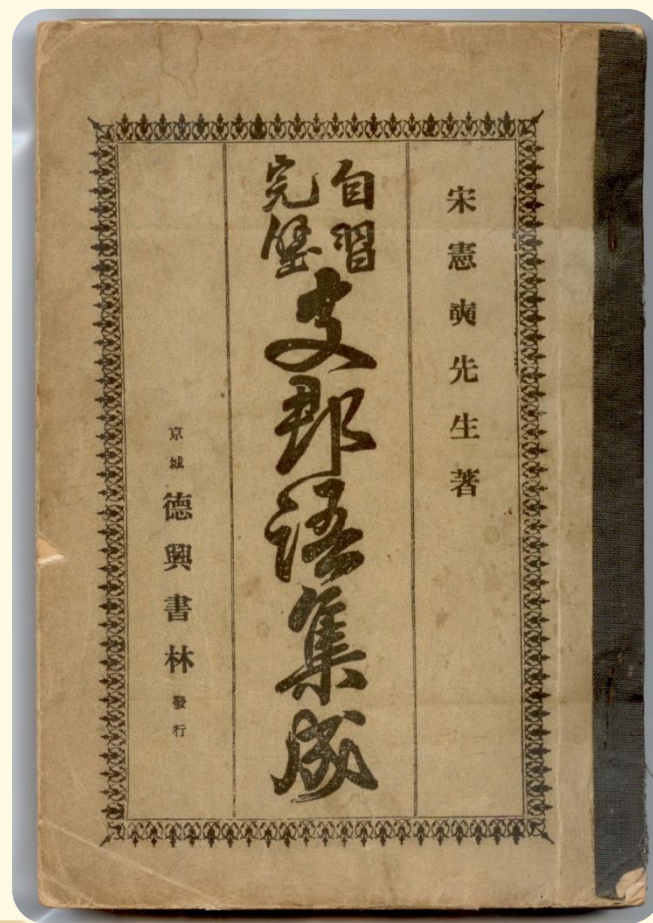 宋憲奭先生著
自習
完璧
支那語集成
京城 德興書林 發行